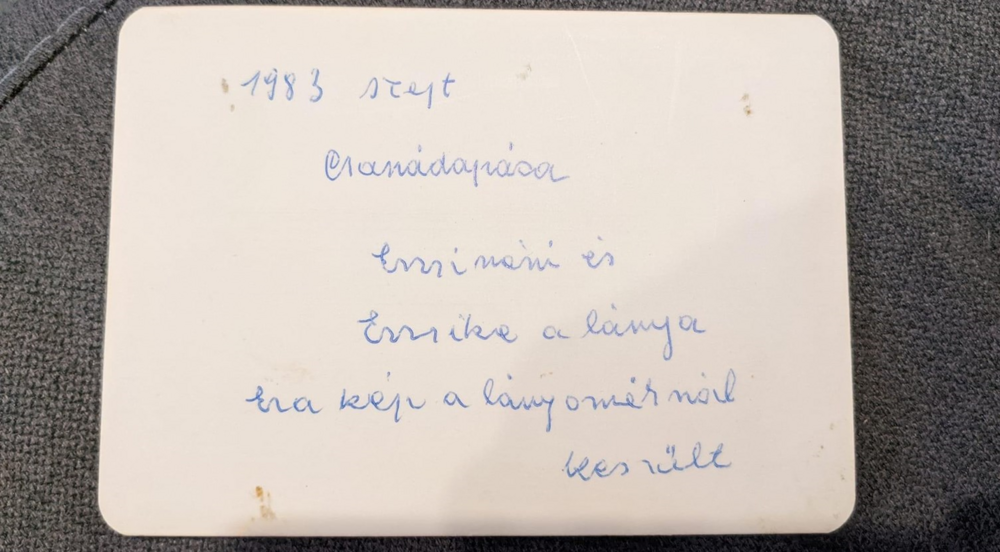 1983 szept
Csanádapáca
Erzsi néni és
Erzsike a lánya
Ez a kép a lányoméknál
készült